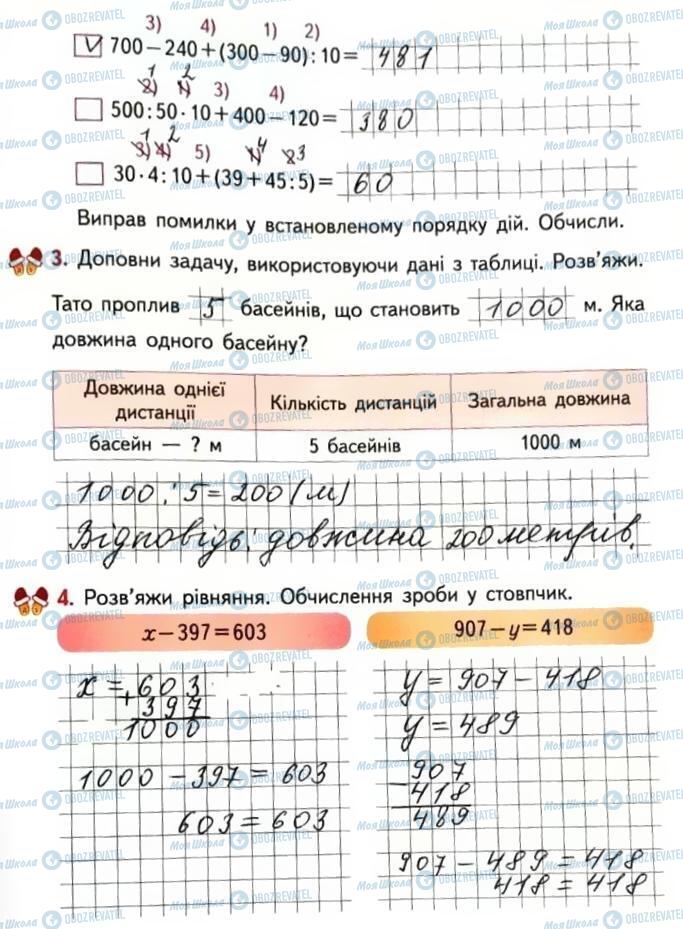 3) 4) 1) 2)
V 700 – 240 + (300 – 90) : 10 = 481
1 2
2) 1) 3) 4)
500 : 50 · 10 + 400 – 120 = 380
1 2 4 3
3) 4) 5) 1) 2)
30 · 4 : 10 + (39 + 45 : 5) = 60
Виправ помилки у встановленому порядку дій. Обчисли.
3. Доповни задачу, використовуючи дані з таблиці. Розв'яжи.
Тато проплив 5 басейнів, що становить 1000 м. Яка
довжина одного басейну?
Довжина однієї дистанції Кількість дистанцій Загальна довжина
басейн — ? м 5 басейнів 1000 м
1000 : 5 = 200 (м)
Відповідь: довжина 200 метрів.
4. Розв'яжи рівняння. Обчислення зроби у стовпчик.
x – 397 = 603 907 – y = 418
x = 603 y = 907 – 418
+ 397 y = 489
1000 907
1000 – 397 = 603 – 418
603 = 603 489
907 – 489 = 418
418 = 418
МояШкола OBOZREVATEL